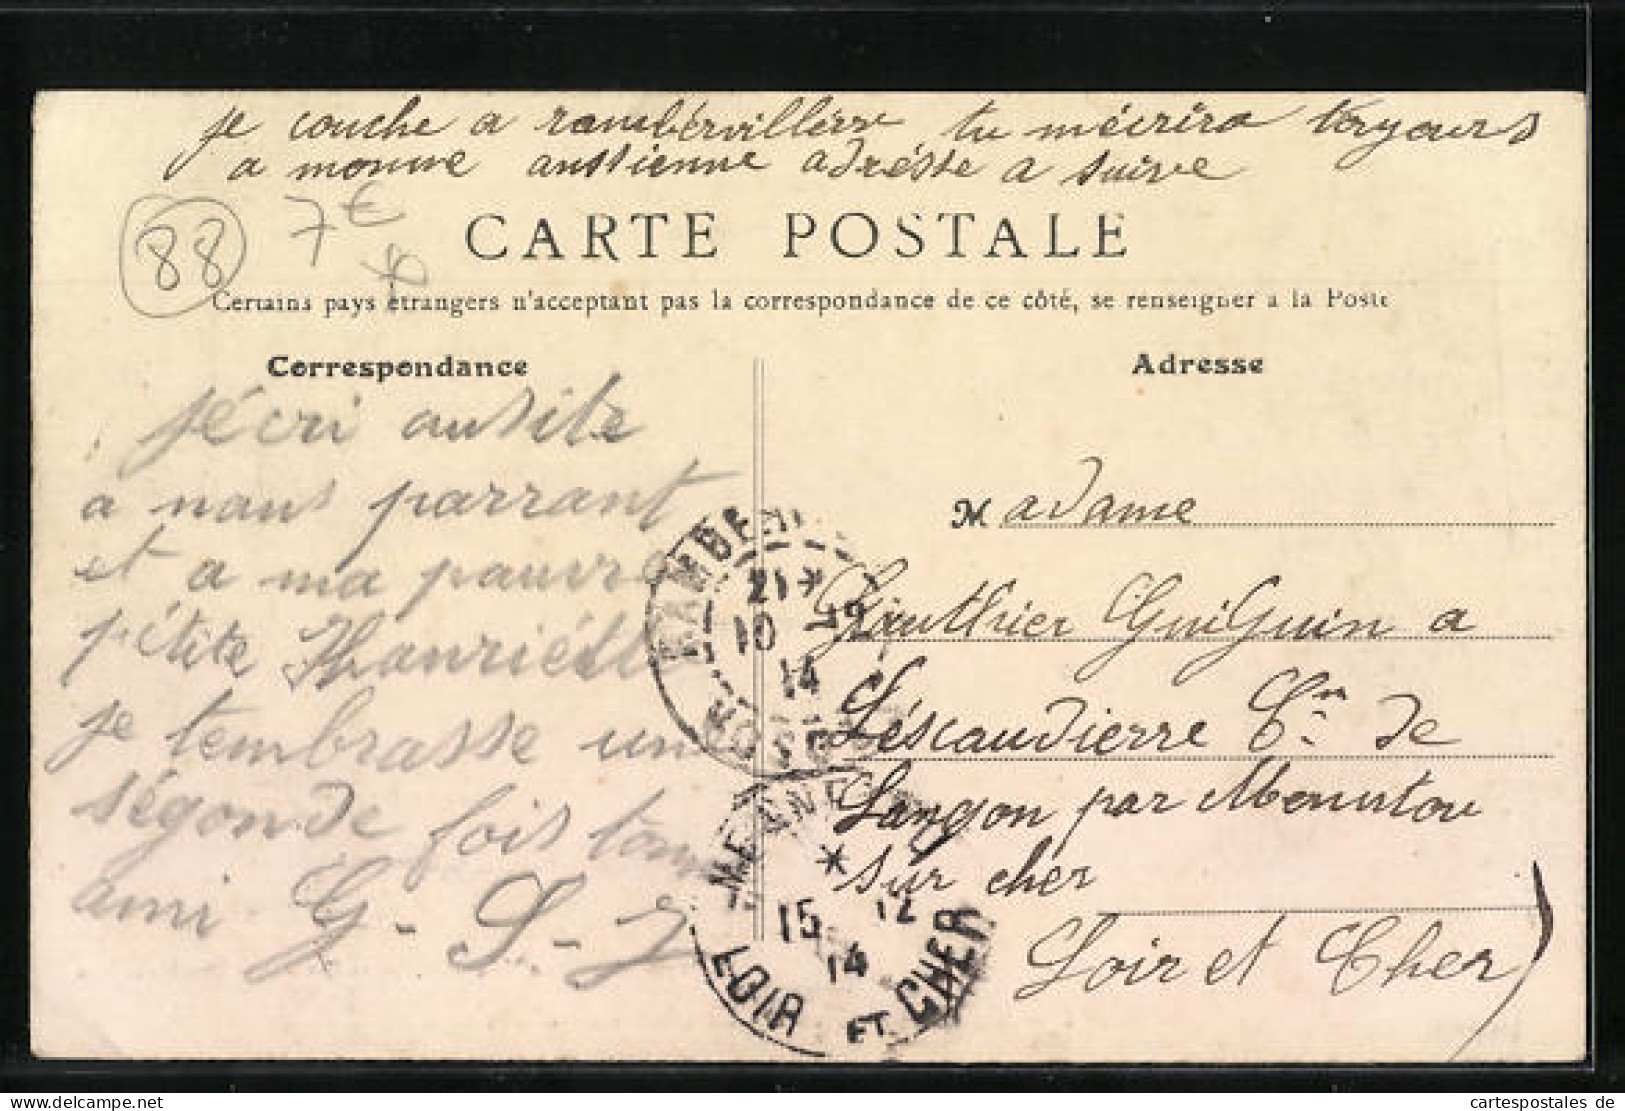 je couche a rambérvillérre tu mécrira toryours
a monme aussienne adrésse a suive
88
7€
CARTE POSTALE
Certains pays étrangers n'acceptant pas la correspondance de ce côté, se renseigner à la Poste
Correspondance
Adresse
jécri ausite
a nous parrant
et a ma pauvre
pétite Hanriétte
je tembrasse une
ségonde fois ton
ami G-S-J
Madame
Gauthier GuiGuin a
Léscaudierre Cn de
Langon par Mennetou
sur cher
Loir et Cher)
RAMBER
21 *
10 12
14
VOSGES
MENNETOU
*
15 12
14
LOIR ET CHER
cartespostales de